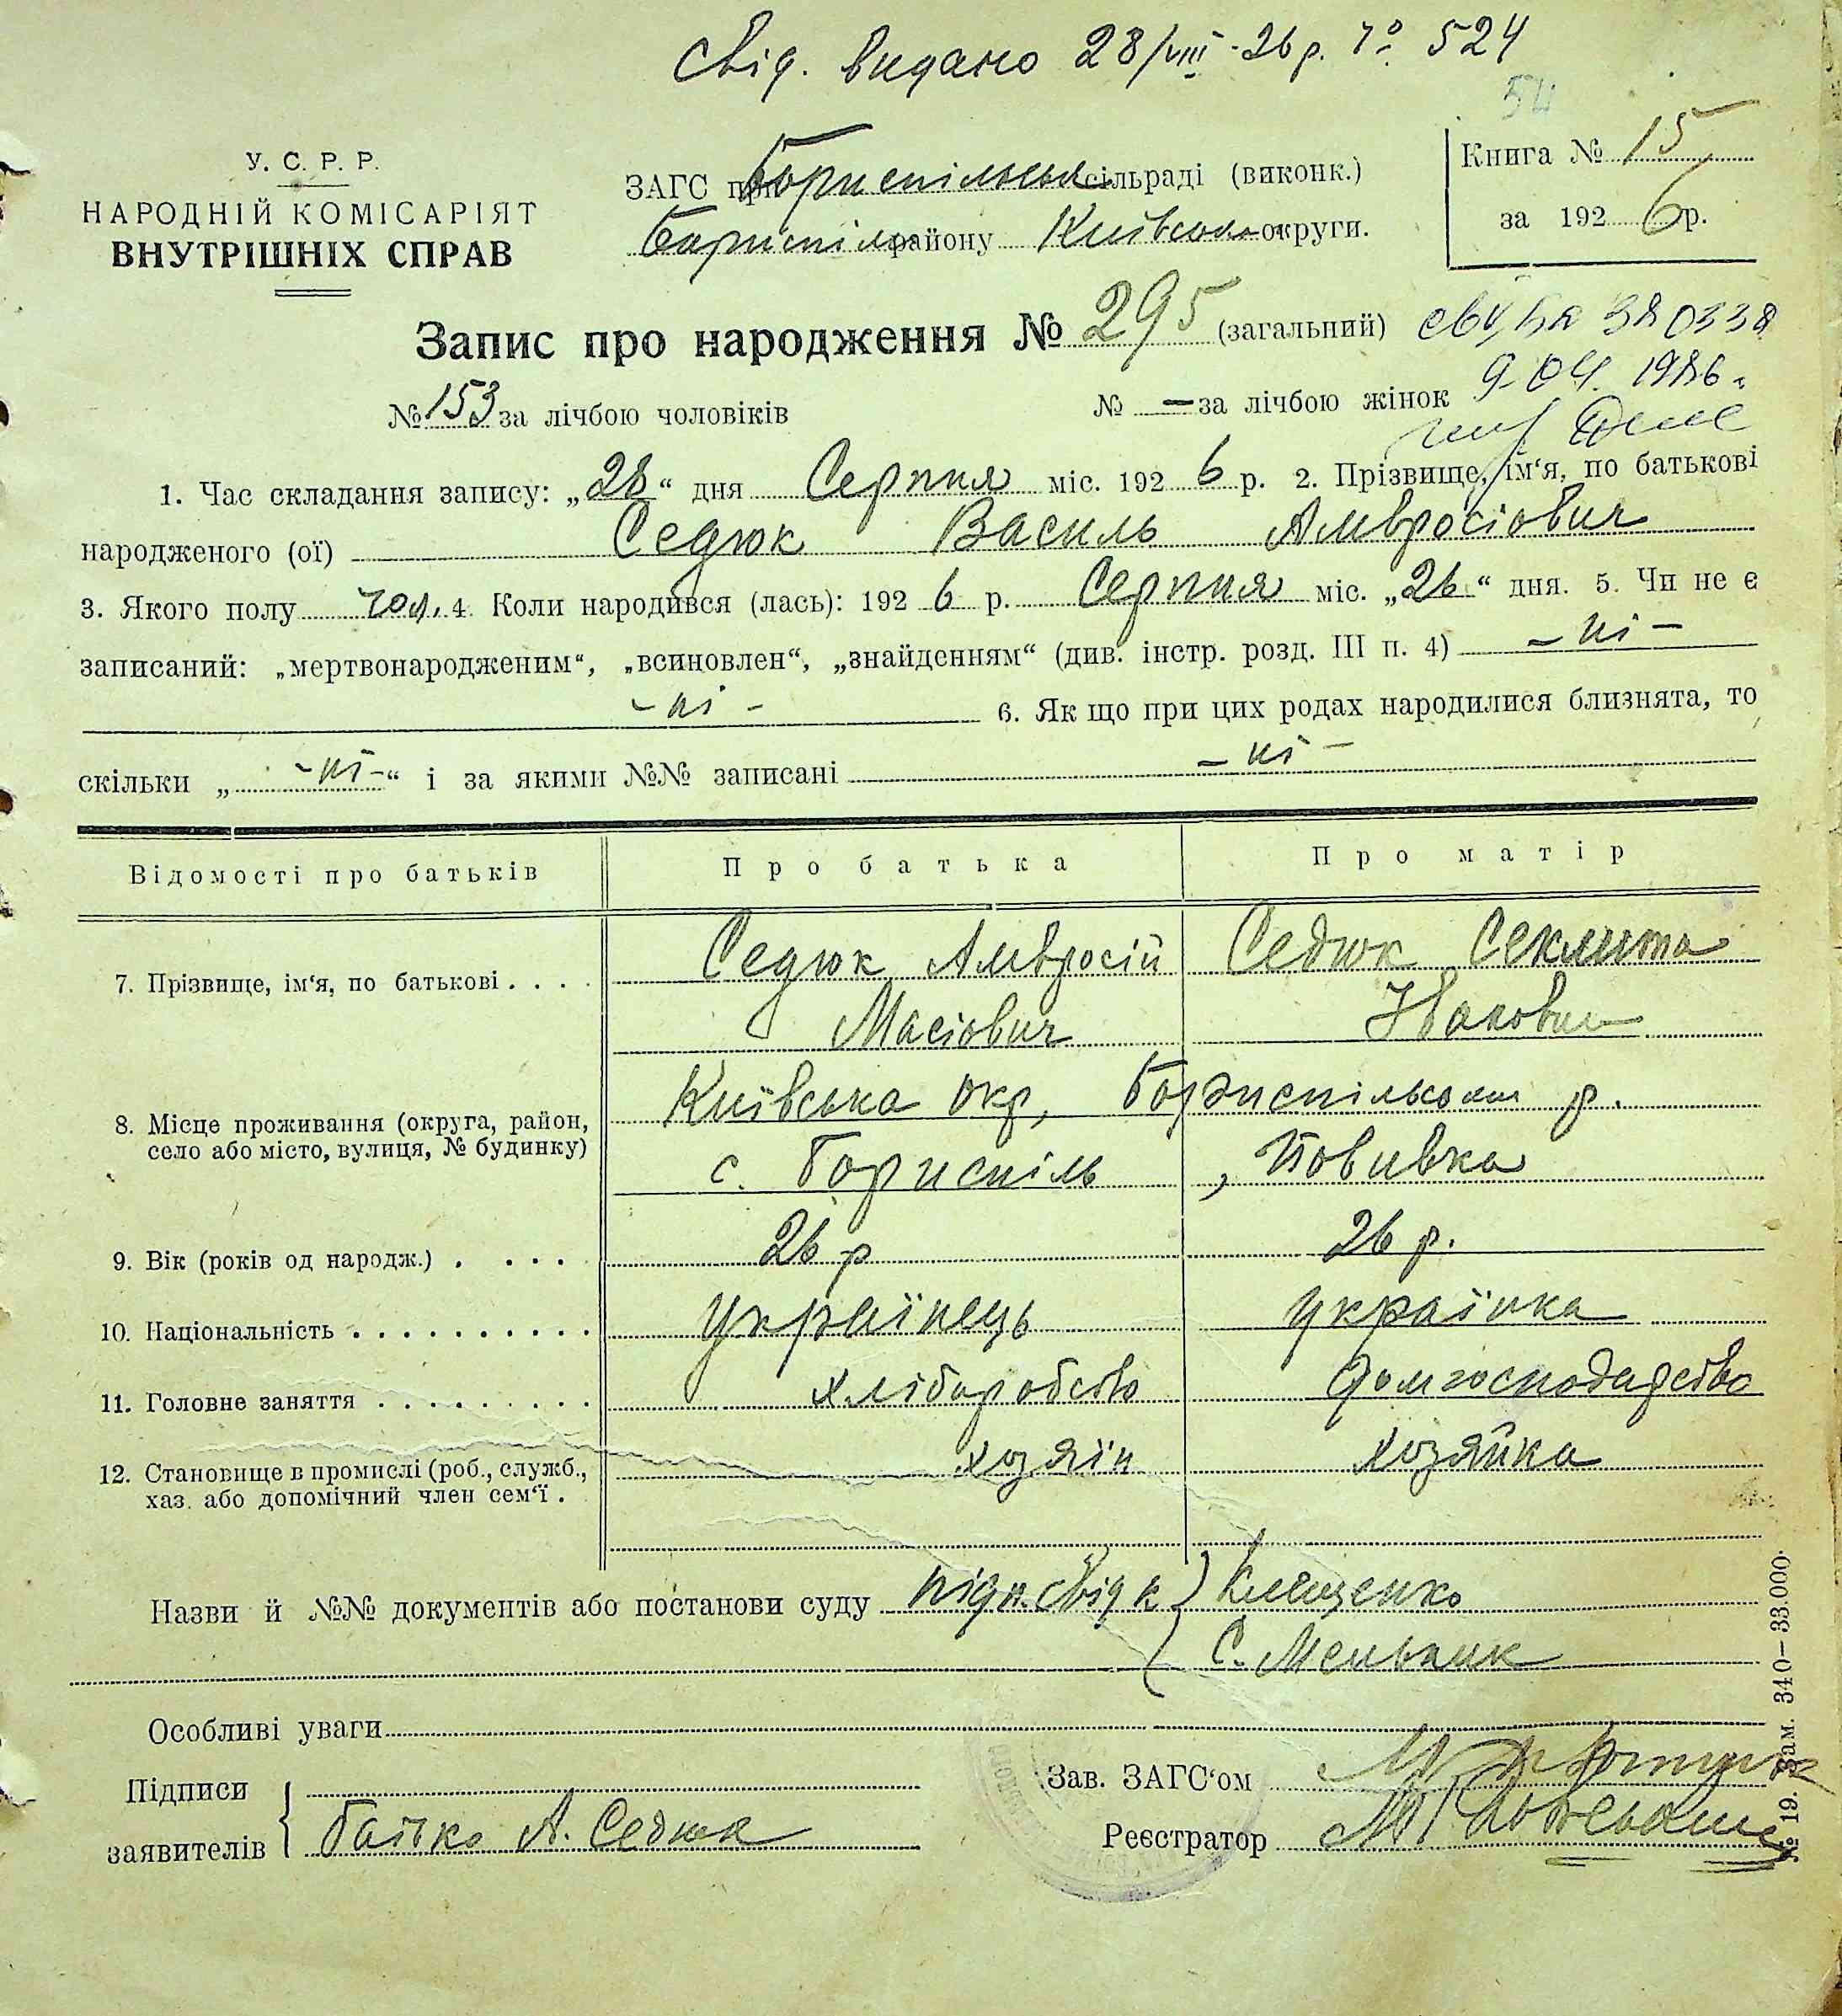 Свід. видано 28/VIII-26р. № 524
54
У. С. Р. Р.
НАРОДНІЙ КОМІСАРІЯТ
ВНУТРІШНІХ СПРАВ
ЗАГС при Бориспільськ сільраді (виконк.)
Бориспіл району Київсько округи.
Книга № 15
за 1926 р.
Запис про народження № 295 (загальний)
9. 04. 1986.
№ 153 за лічбою чоловіків № — за лічбою жінок
1. Час складання запису: „28“ дня Серпня міс. 1926 р. 2. Прізвище, ім‘я, по батькові
народженого (ої) Седюк Василь Амвросіович
3. Якого полу чол. 4. Коли народився (лась): 1926 р. Серпня міс. „26“ дня. 5. Чи не є
записаний: „мертвонародженим“, „всиновлен“, „знайденням“ (див. інстр. розд. III п. 4) – ні –
– ні – 6. Як що при цих родах народилися близнята, то
скільки „– ні –“ і за якими №№ записані – ні –
Відомості про батьків Про батька Про матір
7. Прізвище, ім‘я, по батькові . . . . Седюк Амвросій Седюк Секлита
Масіович Іваковна
8. Місце проживання (округа, район, село або місто, вулиця, № будинку) Київська окр, Бориспільського р.
с. Бориспіль,
9. Вік (років од народж.) . . . . 26 р 26 р.
10. Національність . . . . . . . . . . Українець Українка
11. Головне заняття . . . . . . . . . хліборобство домгосподарство
12. Становище в промислі (роб., служб., хаз. або допомічний член сем‘ї . хозяїн хозяйка
Назви й №№ документів або постанови суду підп. свідк) Клещенко
С. Мельник
Особливі уваги
Підписи
заявителів батько А. Седюк
Зав. ЗАГС‘ом
Реєстратор
№ 19. Зам. 340—33.000.